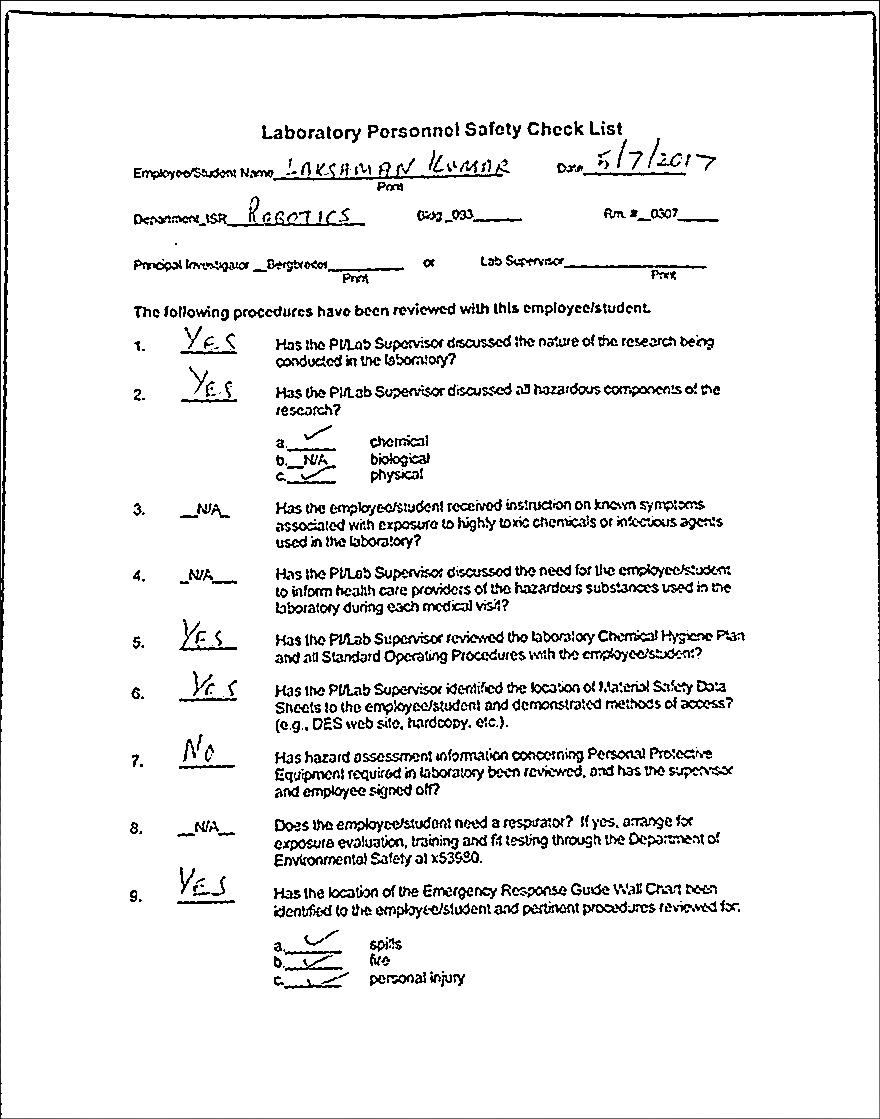 Laboratory Personnel Safety Check List
Employee/Student Name LAKSHMAN KUMAR Date 5/7/2017
Print
Department_ISR ROBOTICS Bldg_093 Rm. #_0307
Principal Investigator Bergbreiter or Lab Supervisor
Print Print
The following procedures have been reviewed with this employee/student.
1. YES Has the PI/Lab Supervisor discussed the nature of the research being
conducted in the laboratory?
2. YES Has the PI/Lab Supervisor discussed all hazardous components of the
research?
a. ✓ chemical
b. N/A biological
c. ✓ physical
3. N/A Has the employee/student received instruction on known symptoms
associated with exposure to highly toxic chemicals or infectious agents
used in the laboratory?
4. N/A Has the PI/Lab Supervisor discussed the need for the employee/student
to inform health care providers of the hazardous substances used in the
laboratory during each medical visit?
5. YES Has the PI/Lab Supervisor reviewed the laboratory Chemical Hygiene Plan
and all Standard Operating Procedures with the employee/student?
6. YES Has the PI/Lab Supervisor identified the location of Material Safety Data
Sheets to the employee/student and demonstrated methods of access?
(e.g., DES web site, hardcopy, etc.).
7. NO Has hazard assessment information concerning Personal Protective
Equipment required in laboratory been reviewed, and has the supervisor
and employee signed off?
8. N/A Does the employee/student need a respirator? If yes, arrange for
exposure evaluation, training and fit testing through the Department of
Environmental Safety at x53980.
9. YES Has the location of the Emergency Response Guide Wall Chart been
identified to the employee/student and pertinent procedures reviewed for:
a. ✓ spills
b. ✓ fire
c. ✓ personal injury